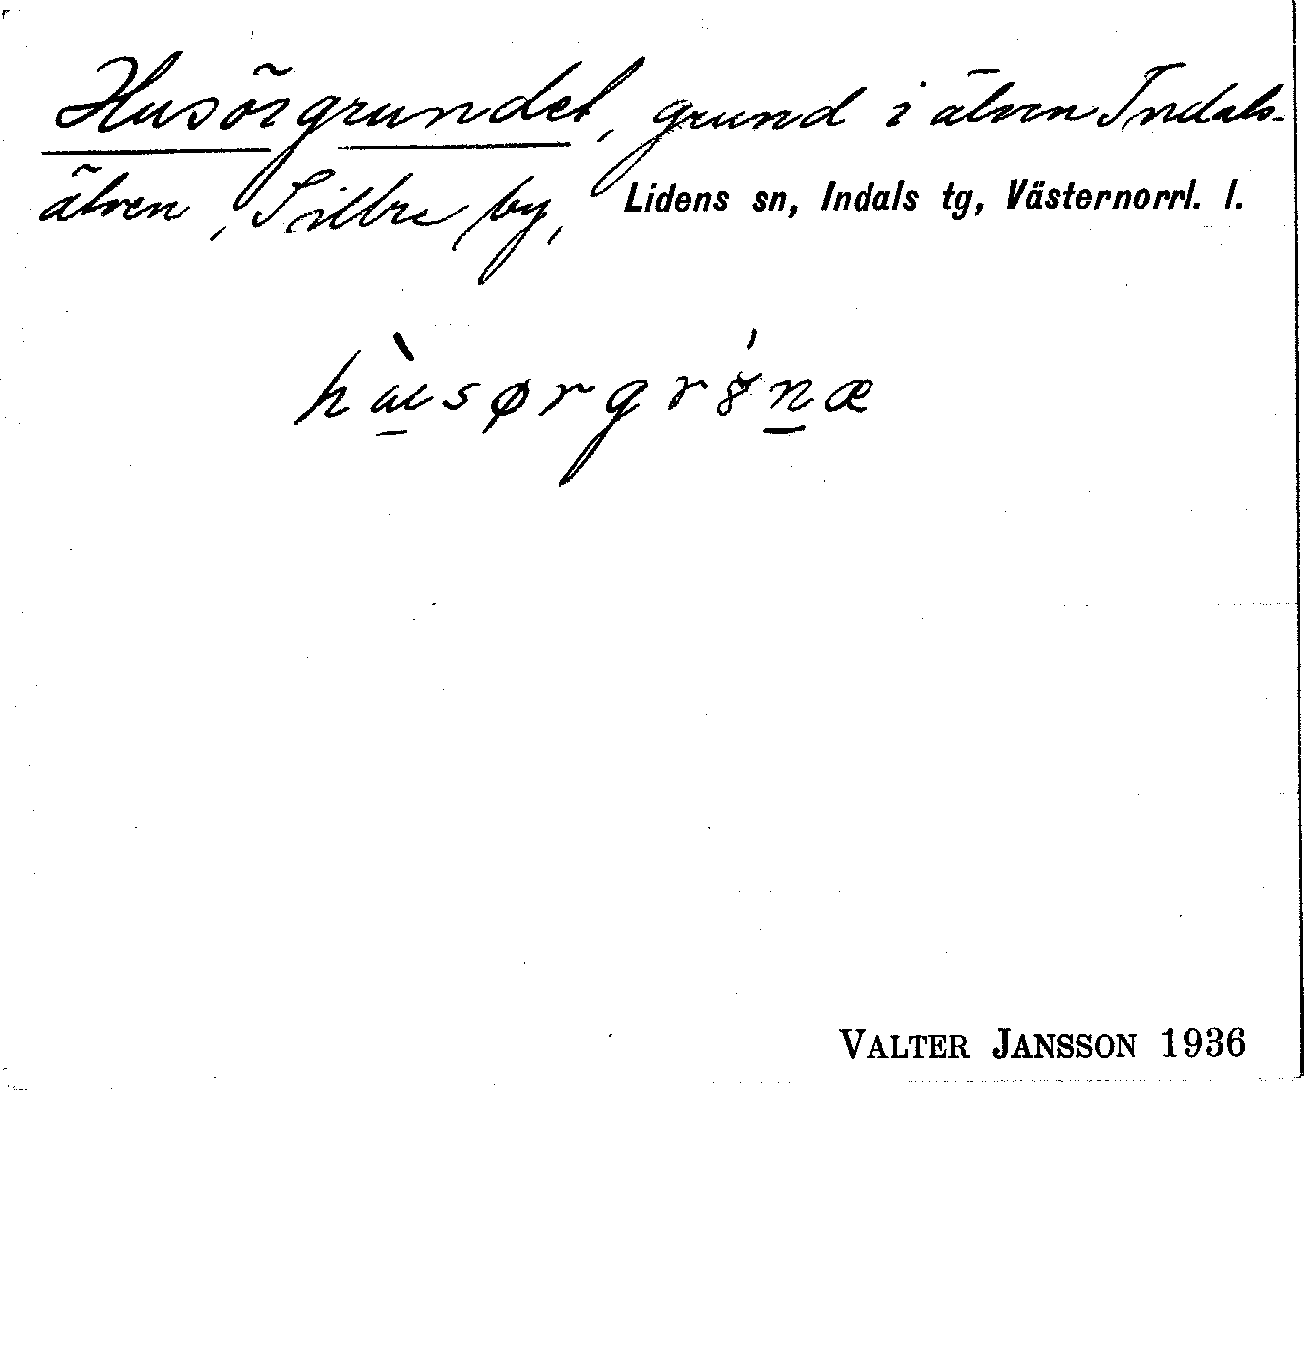 Husörgrundet, grund i älven Indals-
älven, Sillre by, Lidens sn, Indals tg, Västernorrl. l.
hùsørgrȣ́næ
VALTER JANSSON 1936